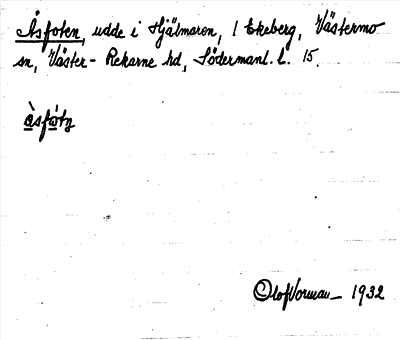 Åsfoten, udde i Hjälmaren, 1 Ekeberg, Västermo
sn, Väster-Rekarne hd, Södermanl. l. 15.
àsfòtn
Olof Norman 1932